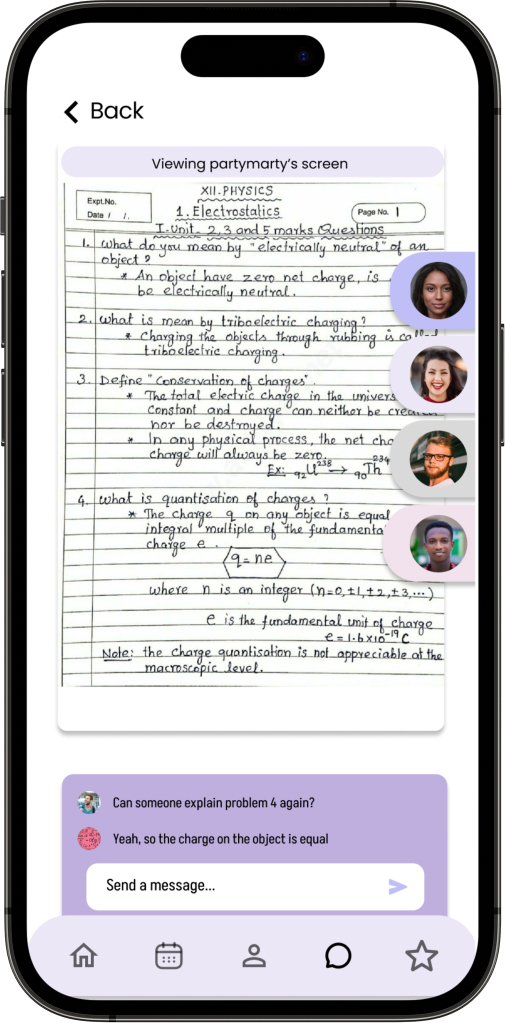 Back
Viewing partymarty's screen
Expt.No.
Date / /.
XII-PHYSICS
1. Electrostatics
Page No. 1
I-Unit. 2, 3 and 5 marks Questions
1. What do you mean by "electrically neutral" of an
object?
* An object have zero net charge, is
be electrically neutral.
2. What is mean by triboelectric charging?
* Charging the objects through rubbing is called
triboelectric charging.
3. Define "Conservation of charges".
* The total electric charge in the univers
constant and charge can neither be created
nor be destroyed.
* In any physical process, the net cha
charge will always be zero.
Ex: ₉₂U²³⁸ → ₉₀Th²³⁴
4. What is quantisation of charges?
* The charge q on any object is equal
integral multiple of the fundamenta
charge e.
q = ne
where n is an integer (n=0, ±1, ±2, ±3,...)
e is the fundamental unit of charge
e = 1.6x10⁻¹⁹ C
Note: the charge quantisation is not appreciable at the
macroscopic level.
Can someone explain problem 4 again?
Yeah, so the charge on the object is equal
Send a message...